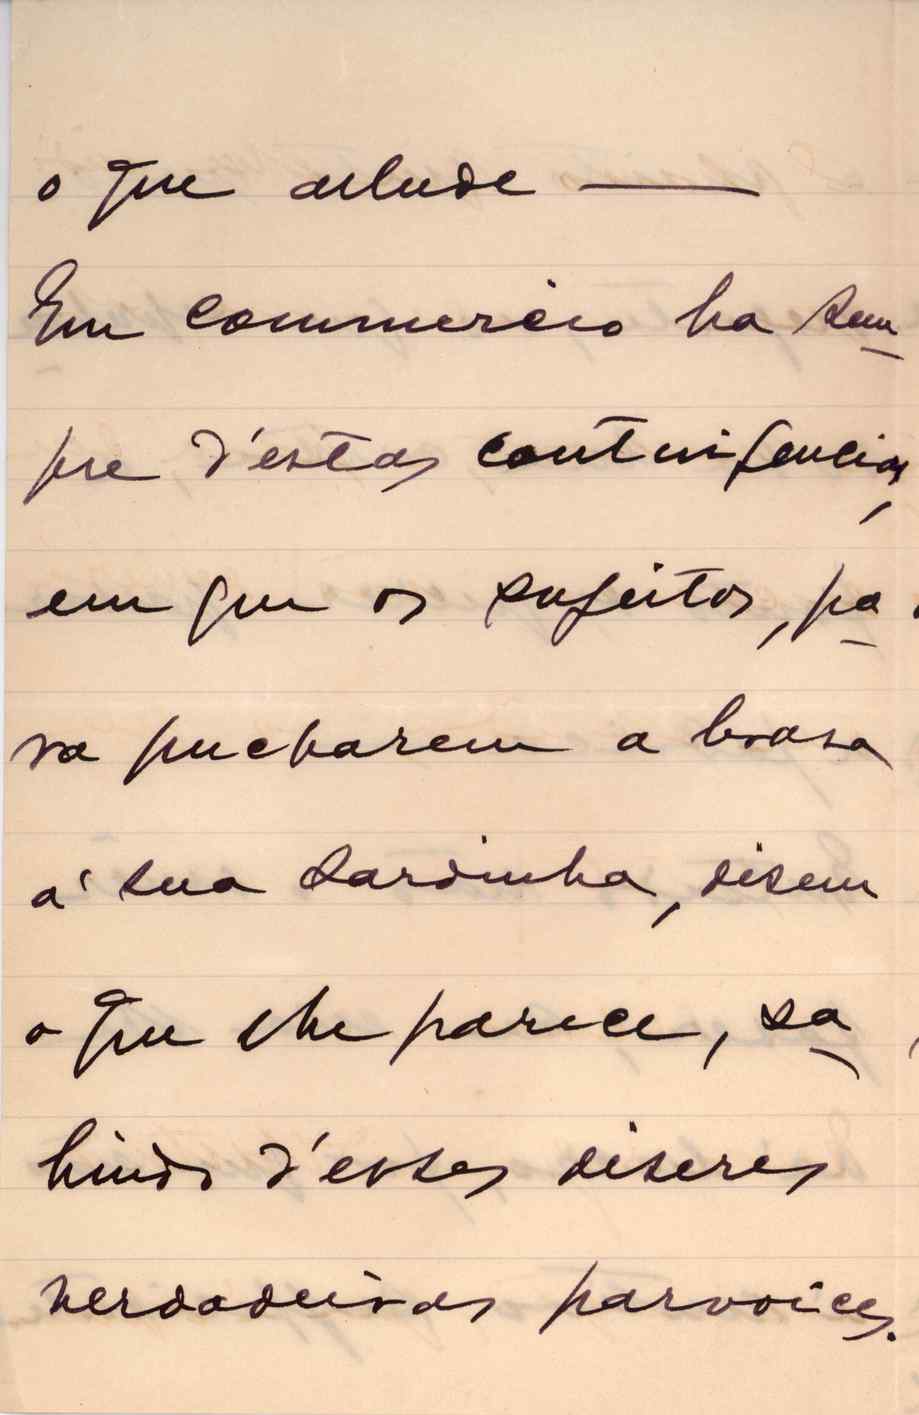 o que allude —
Em commercio ha sem-
pre d'estas contingencias,
em que os sugeitos, pa-
ra pucharem a brasa
á sua sardinha, disem
o que lhe parece, sa-
hindo d'esses diseres
verdadeiras parvoices.